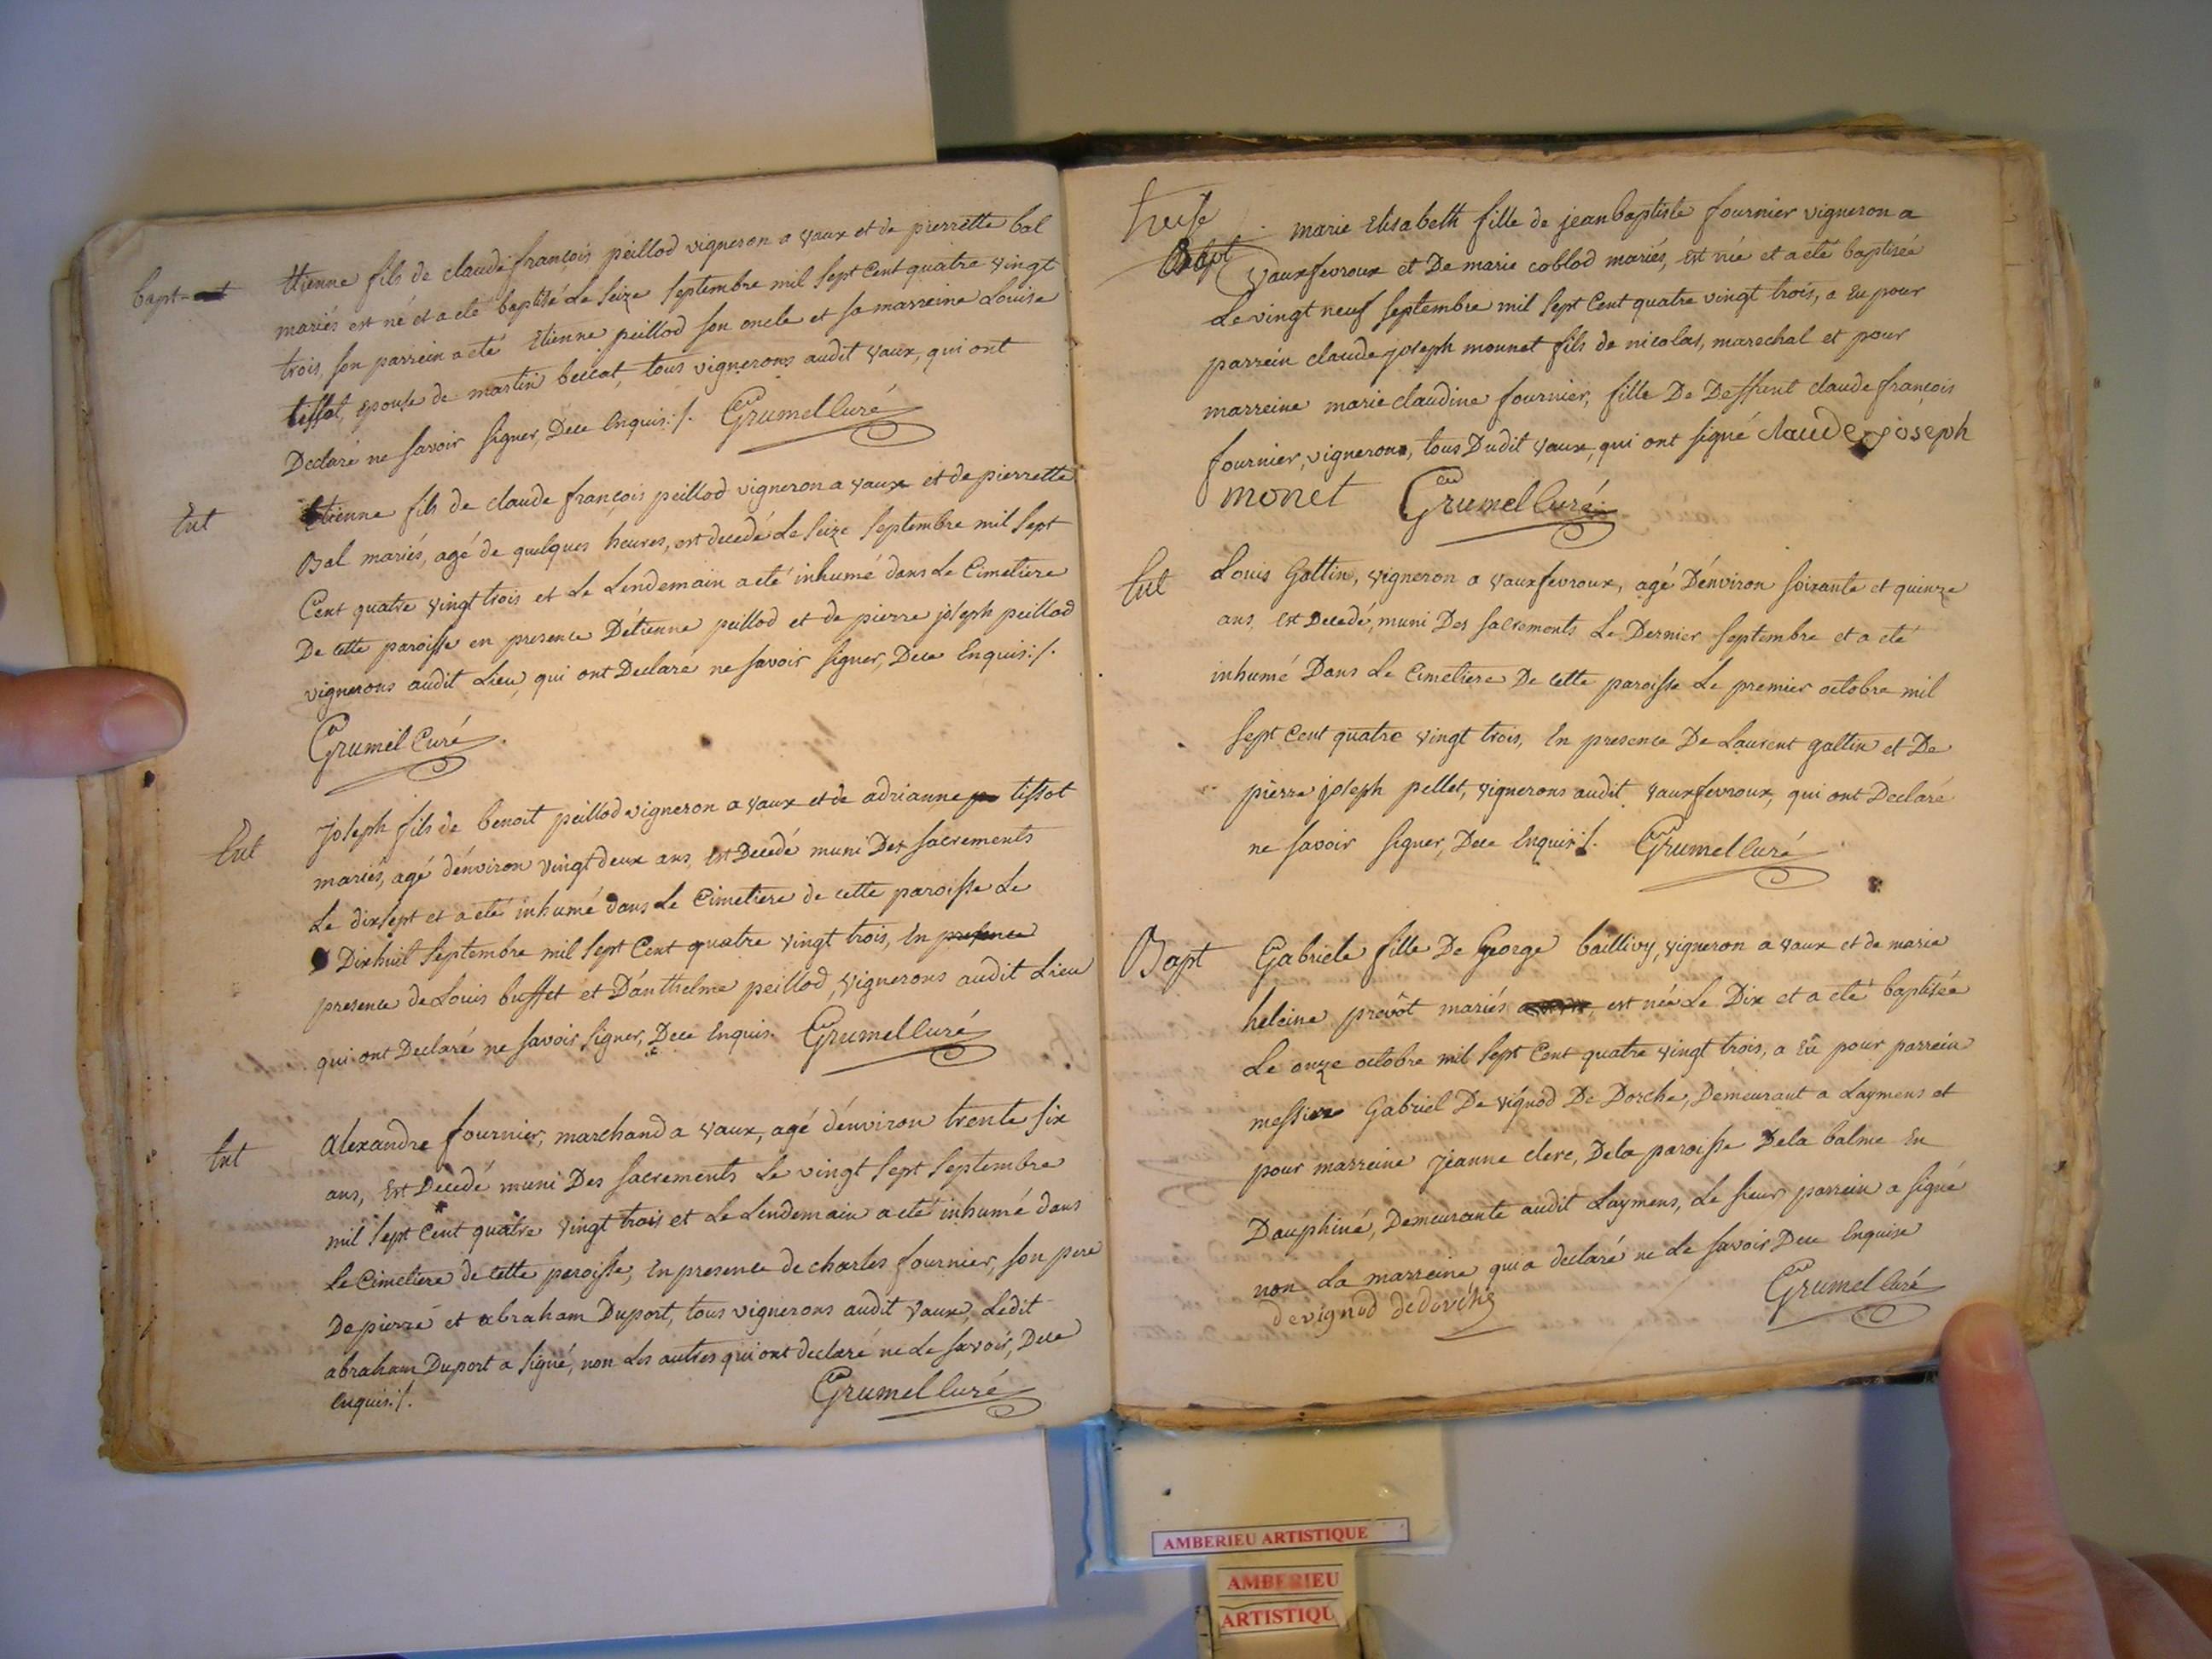 bapt
Etienne fils de claude françois peillod vigneron a vaux et de pierrette bal
mariés est né et a eté baptisé Le Seize Septembre mil Sept Cent quatre vingt
trois, son parrein a eté Etienne peillod son oncle et sa marreine Louise
tissot, epouse de martin beccat, tous vignerons audit vaux, qui ont
Declaré ne savoir signer, Dece Enquis ./.
Grumel Curé
Ent
Etienne fils de claude françois peillod vigneron a vaux et de pierrette
Bal mariés, agé de quelques heures, est decedé Le Seize Septembre mil Sept
Cent quatre vingt trois et Le Lendemain a eté inhumé dans Le Cimetiere
De cette paroisse en presence D'etienne peillod et de pierre joseph peillod
vignerons audit Lieu, qui ont Declaré ne savoir signer, Dece Enquis ./.
Grumel Curé
Ent
Joseph fils de benoit peillod vigneron a vaux et de adrianne tissot
mariés, agé d'environ vingt deux ans, est Decedé muni Des sacrements
Le dix sept et a eté inhumé dans Le Cimetiere de cette paroisse Le
Dixhuit Septembre mil Sept Cent quatre vingt trois, En presence
presence de Louis buffet et D'anthelme peillod, vignerons audit Lieu
qui ont Declaré ne savoir signer, Dece Enquis.
Grumel Curé
Ent
Alexandre fournier, marchand a vaux, agé d'environ trente six
ans, Est Decedé muni Des sacrements Le vingt Sept Septembre
mil Sept Cent quatre vingt trois et Le Lendemain a eté inhumé dans
Le Cimetiere de cette paroisse, En presence de charles fournier, son pere
De pierre et abraham Duport, tous vignerons audit vaux, Ledit
abraham Duport a signé, non Les autres qui ont declaré ne Le savoir, Dece
Enquis ./.
Grumel Curé
treise
Bapt
marie Elisabeth fille de jean baptiste fournier vigneron a
vauxfevroux et De marie coblod mariés, est née et a eté baptisée
Le vingt neuf Septembre mil Sept Cent quatre vingt trois, a Eu pour
parrein claude joseph monnet fils de nicolas, marechal et pour
marreine marie claudine fournier, fille De Deffunt claude françois
fournier, vignerons, tous Dudit vaux, qui ont signé claude joseph
monet
Grumel Curé
Ent
Louis Gottin, vigneron a vauxfevroux, agé D'environ soixante et quinze
ans, est Decedé, muni Des sacrements Le Dernier Septembre et a eté
inhumé Dans Le Cimetiere De cette paroisse Le premier octobre mil
Sept Cent quatre vingt trois, En presence De Laurent gottin et De
pierre joseph pellet, vignerons audit vauxfevroux, qui ont Declaré
ne savoir signer, Dece Enquis ./.
Grumel Curé
Bapt
Gabriele fille De George baillivy, vigneron a vaux et de marie
heleine prevôt mariés est née Le Dix et a eté baptisée
Le onze octobre mil Sept Cent quatre vingt trois, a Eû pour parrein
messire Gabriel De vignod De Dorche, Demeurant a Laymens et
pour marreine jeanne clerc, De la paroisse De la balme En
Dauphiné, Demeurante audit Laymens, Le sieur parrein a signé
non La marreine qui a declaré ne Le savoir Dece Enquise
devignod dedorche
Grumel Curé
AMBERIEU ARTISTIQUE
AMBERIEU
ARTISTIQU